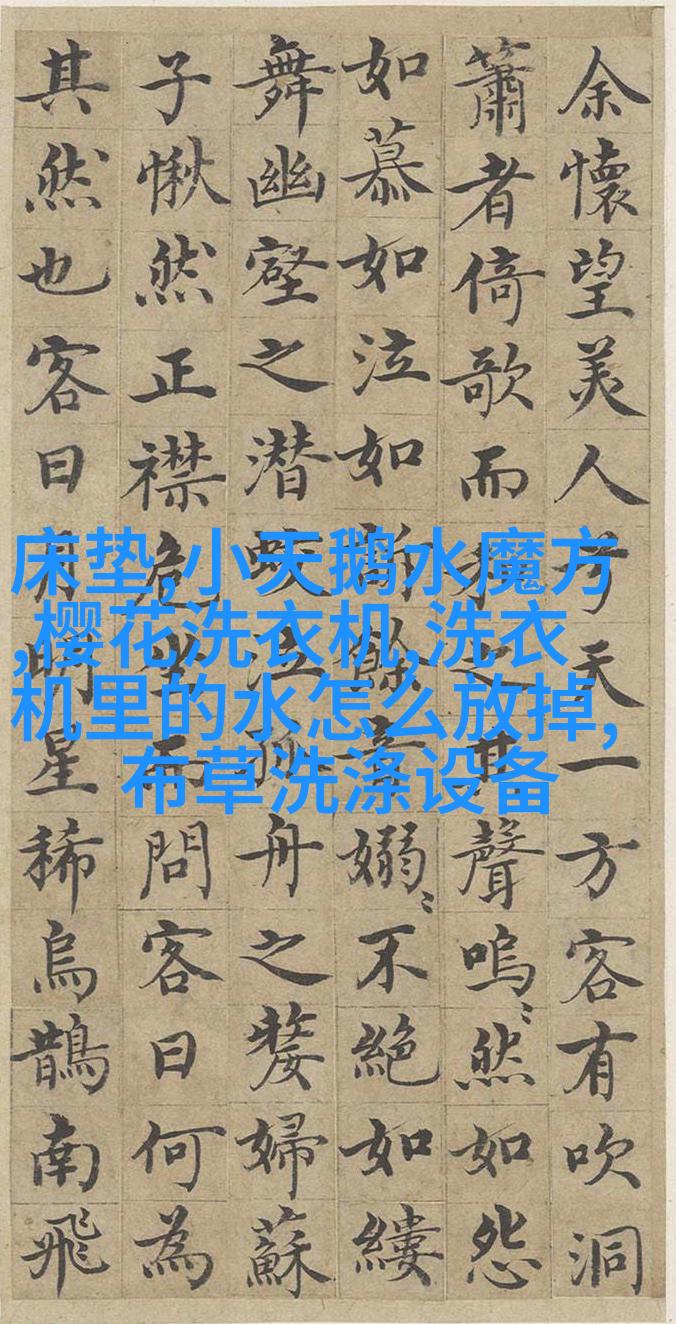 余懷望美人兮天一方客有吹洞
簫者倚歌而和之其聲嗚〻然如怨
如慕如泣如訴餘音嫋〻不絶如縷
舞幽壑之潜蛟泣孤舟之嫠婦蘇
子愀然正襟危坐而問客曰何為
其然也客曰月明星稀烏鵲南飛
床垫,小天鹅水魔方
,樱花洗衣机,洗衣
机里的水怎么放掉,
布草洗涤设备